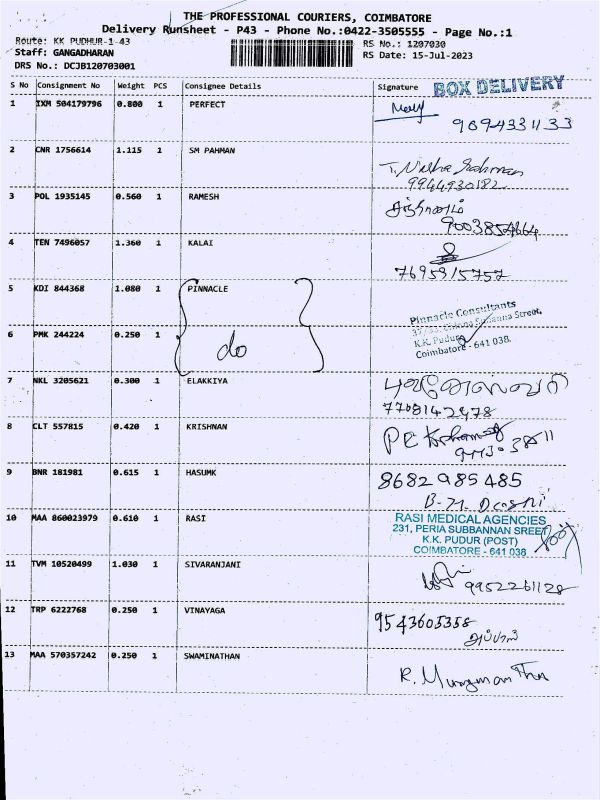 THE PROFESSIONAL COURIERS, COIMBATORE
Delivery Runsheet - P43 - Phone No.:0422-3505555 - Page No.:1
Route: KK PUDHUR-1-43
RS No.: 1207030
Staff: GANGADHARAN
RS Date: 15-Jul-2023
DRS No.: DCJB120703001
S No Consignment No Weight PCS Consignee Details Signature BOX DELIVERY
1 IXM 504179796 0.800 1 PERFECT
2 CNR 1756614 1.115 1 SM PAHMAN
9944930182
3 POL 1935145 0.560 1 RAMESH
4 TEN 7496057 1.360 1 KALAI
7695915757
5 KDI 844368 1.080 1 PINNACLE
Pinnacle Consultants
Street,
6 PMK 244224 0.250 1 do
K.K. Pudur
Coimbatore - 641 038.
7 NKL 3205621 0.300 1 ELAKKIYA
7708142978
8 CLT 557815 0.420 1 KRISHNAN
9 BNR 181981 0.615 1 HASUMK 8682985485
10 MAA 860023979 0.610 1 RASI
RASI MEDICAL AGENCIES
231, PERIA SUBBANNAN SREET
K.K. PUDUR (POST)
COIMBATORE - 641 038
11 TVM 10520499 1.030 1 SIVARANJANI
9952261128
12 TRP 6222768 0.250 1 VINAYAGA 9543605358
13 MAA 570357242 0.250 1 SWAMINATHAN